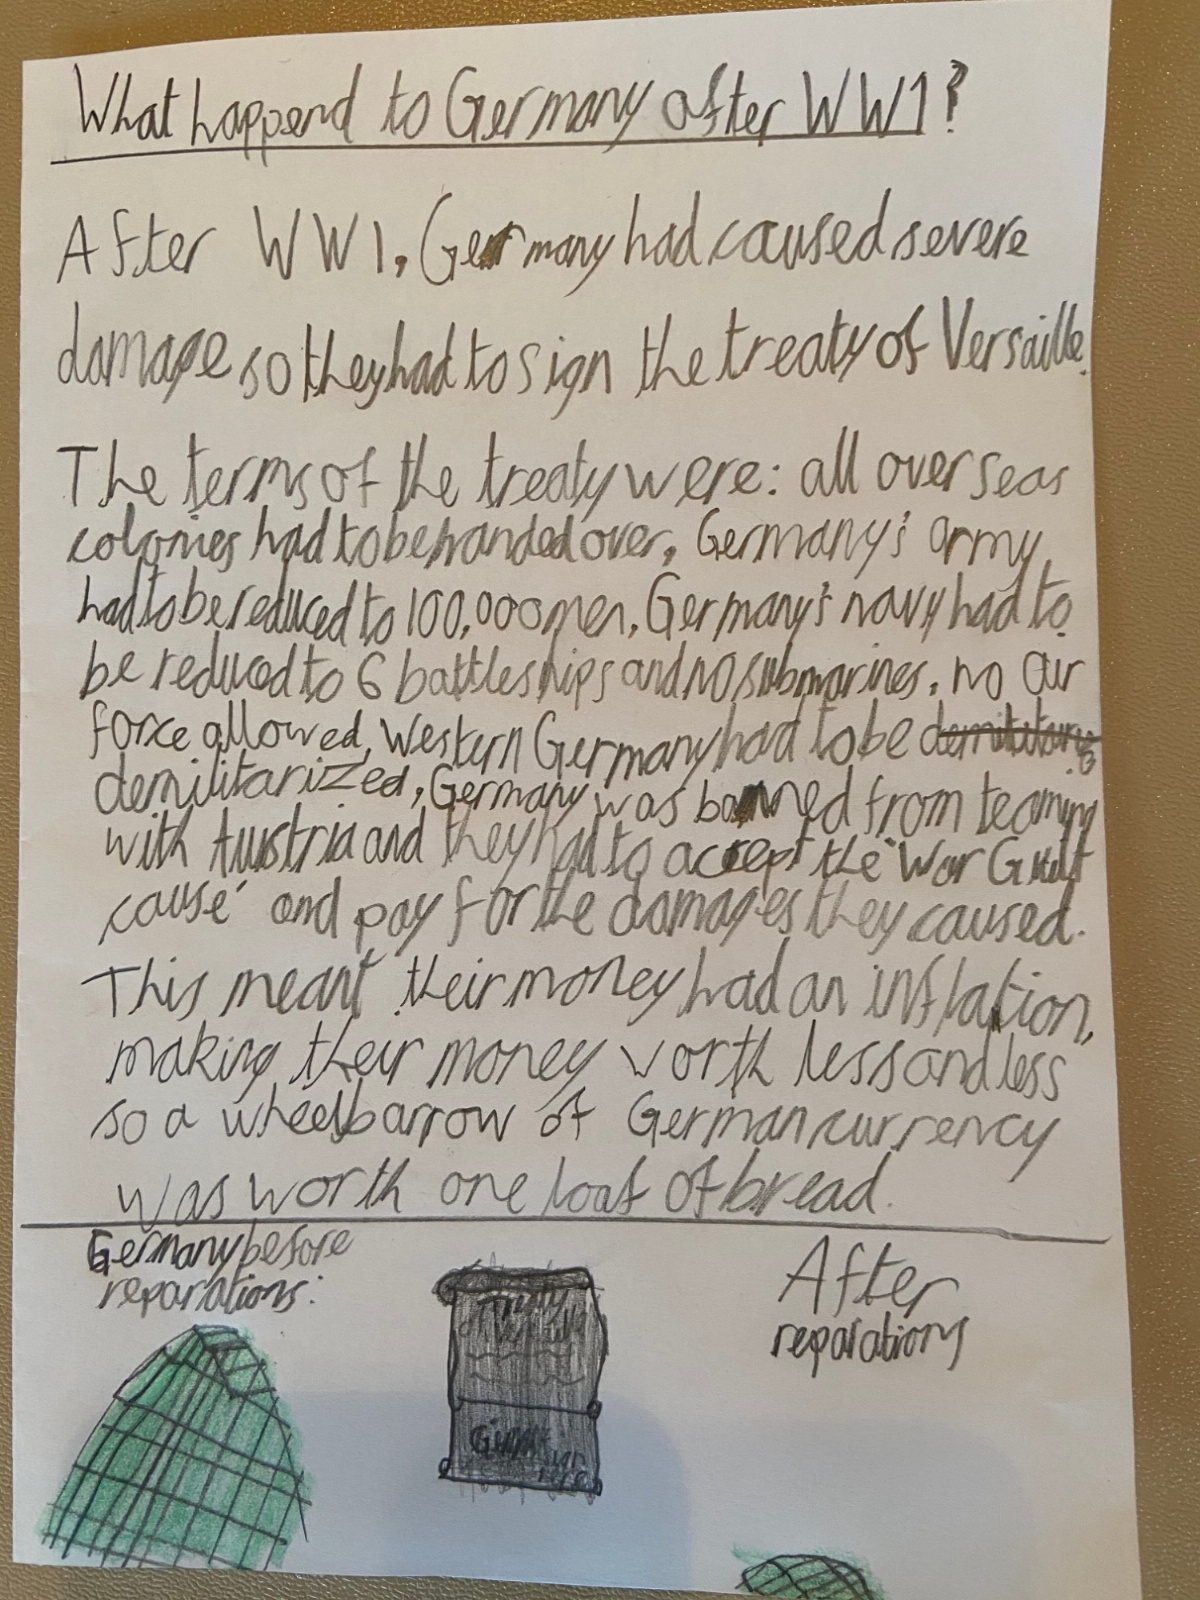 What happend to Germany after WW1?
After WW1, Germany had caused severe
damage so they had to sign the treaty of Versaille.
The terms of the treaty were: all over seas
colonies had to be handed over, Germany's army
had to be reduced to 100,000 men, Germany's navy had to
be reduced to 6 battleships and no submarines, no air
force allowed, Western Germany had to be demilitariz
demilitarized, Germany was banned from teaming
with Austria and they had to accept the 'War Guilt
cause' and pay for the damages they caused.
This meant their money had an inflation,
making their money worth less and less
so a wheelbarrow of German currency
was worth one loaf of bread.
Germany before
reparations:
Treaty
of Versaille
German sign
here
After
reparations